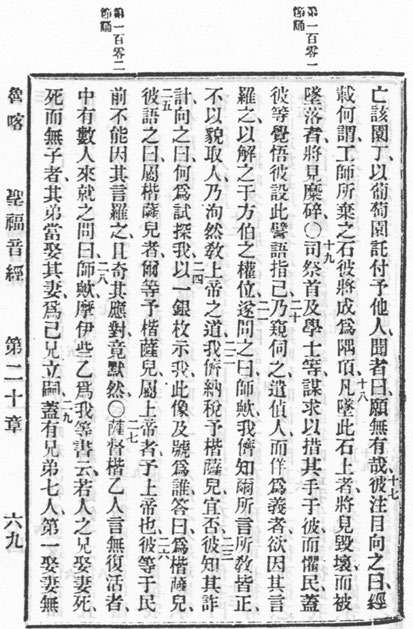 第一百零一節誦
第一百零二節誦
亡該園丁以葡萄園託付予他人聞者曰願無有哉十七彼注目向之曰經
載何謂工師所棄之石彼將成為隅頂十八凡墜此石上者將見毀壞而被
墜落者將見糜碎○十九司祭首及學士等謀求以措其手于彼而懼民蓋
彼等覺悟彼設此譬語指己二十乃窺伺之遣偵人而佯為義者欲因其言
羅之以解之于方伯之權位二一遂問之曰師歟我儕知爾所言所教皆正
不以貌取人乃洵然教上帝之道二二我儕納稅予楷薩兒宜否二三彼知其詐
計向之曰何為試探我二四以一銀枚示我此像及號為誰答曰為楷薩兒
二五彼語之曰屬楷薩兒者爾等予楷薩兒屬上帝者予上帝也二六彼等于民
前不能因其言羅之且奇其應對竟默然○二七薩督楷乙人言無復活者
中有數人來就之問曰二八師歟摩伊些乙為我等書云若人之兄娶妻死
死而無子者其弟當娶其妻為己兄立嗣二九蓋有兄弟七人第一娶妻無
魯喀 聖福音經 第二十章 六九